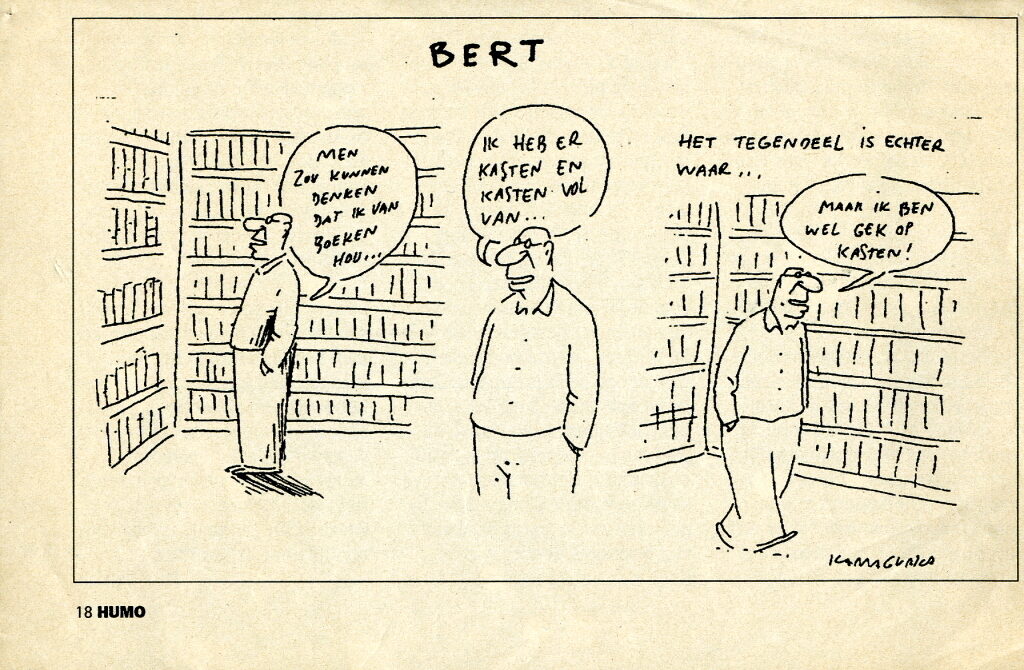 BERT
MEN
ZOU KUNNEN
DENKEN
DAT IK VAN
BOEKEN
HOU...
IK HEB ER
KASTEN EN
KASTEN VOL
VAN...
HET TEGENDEEL IS ECHTER
WAAR...
MAAR IK BEN
WEL GEK OP
KASTEN!
KAMAGURKA
18 HUMO